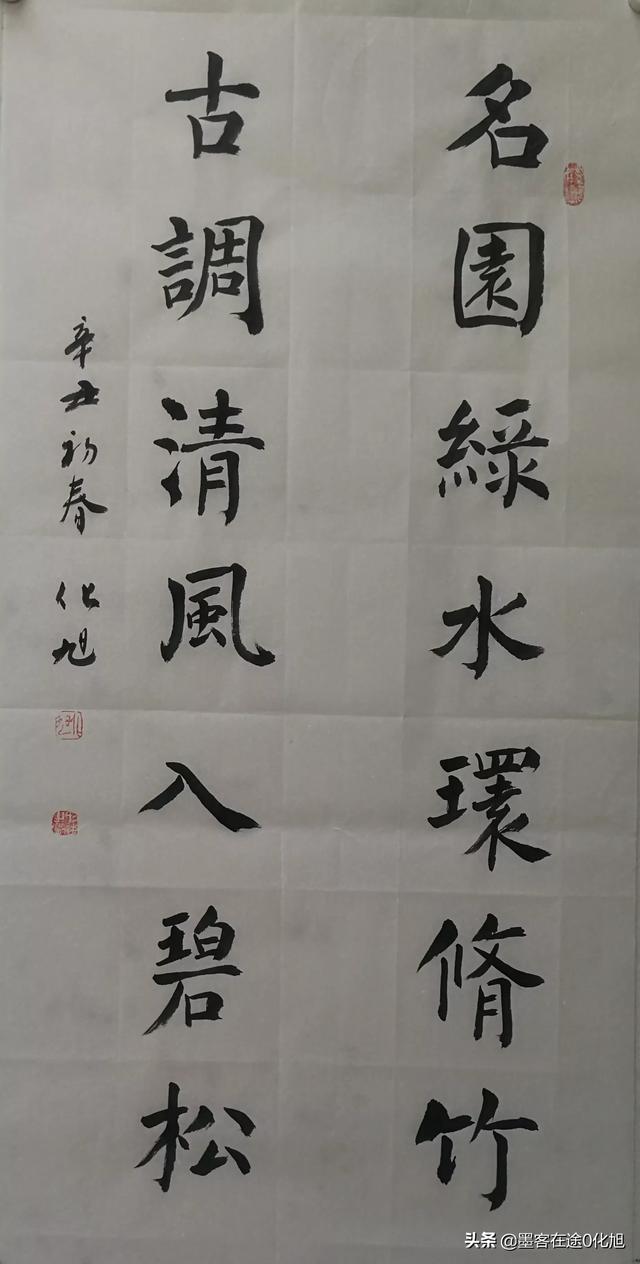 名園綠水環脩竹
古調清風入碧松
辛丑初春 化旭
头条 @墨客在途0化旭